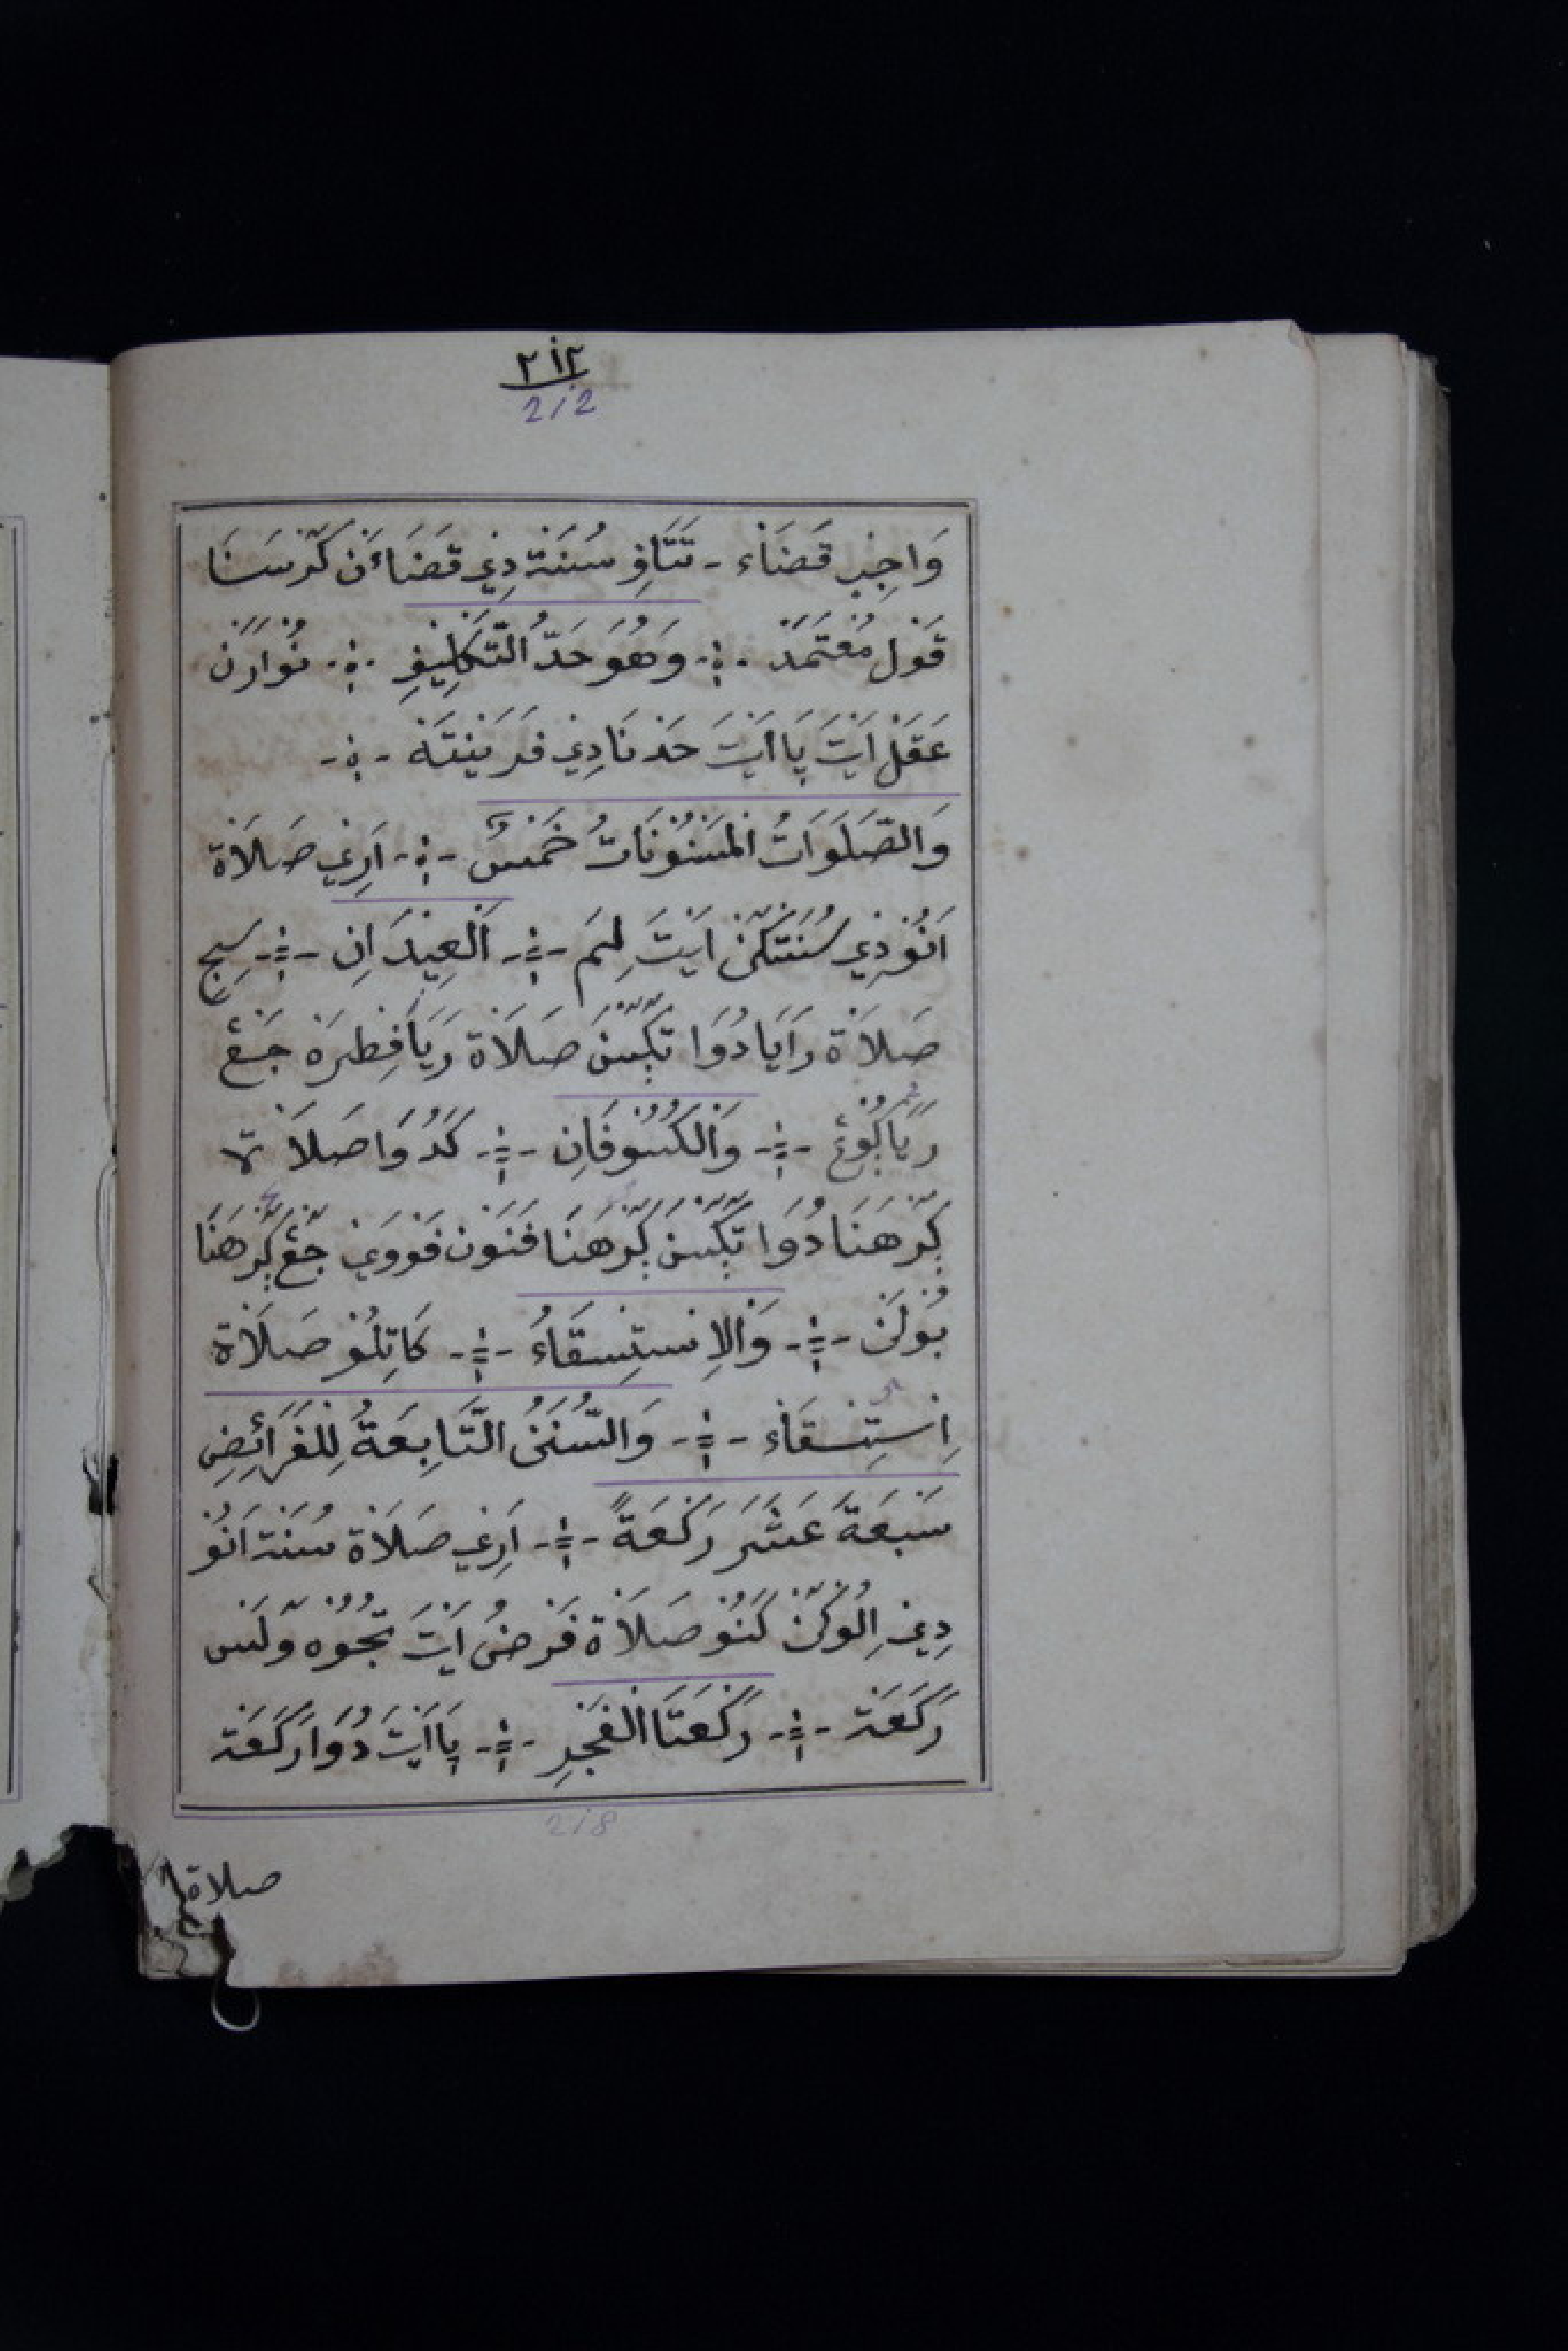 ٢١٢
212
وَاجِبْ قَضَاءْ - تَتَافِ سُنَةْ دِيْ قَضَاءَنْ كَرْسَنَا
قَوْلْ مُعْتَمَدْ ÷ وَهُوَ حَدُّ التَّكْلِيْفِ ÷ نُوَارَنْ
عَقَلْ اَيْتَ ڽَااَيْتَ حَدْنَا دِيْ فَرَيْنْتَهْ ÷
وَالصَّلَوَاتُ الْمَسْنُوْنَاتُ خَمْسٌ ÷ اَرْتِيْ صَلَاةْ
اَنُوْ دِيْ سُنَتْكَنْ اَيْتَ لِمَ ÷ اَلْعِيْدَانِ ÷ سِجِ
صَلَاةْ رَايَا دُوَا تݢْسْنَ صَلَاةْ رَيَا فِطْرَهْ جَڠْ
رَيَا ݢُوْڠْ ÷ وَالْكُسُوْفَانِ ÷ كَدُوَا صَلَاةْ
ݢَرْهَنَا دُوَا تݢْسْنَ ݢَرْهَنَا فَنَوْنْ فَوْوَيْ جَڠْ ݢَرْهَنَا
بُوْلَنْ ÷ وَالْاِسْتِسْقَاءُ ÷ كَاتِلُوْ صَلَاةْ
اِسْتِسْقَاءْ ÷ وَالسُّنَنُ التَّابِعَةُ لِلْفَرَائِضِ
سَبْعَةَ عَشَرَ رَكْعَةً ÷ اَرْتِيْ صَلَاةْ سُنَةْ اَنُوْ
دِيْ اِلُوْكَنْ كَنُوْ صَلَاةْ فَرْضُ اَيْتَ تُجُوْه وَلَسْ
رَكَعَةْ ÷ رَكْعَتَا الْفَجْرِ ÷ ڽَااَيْتَ دُوَا رَكَعَةْ
218
صلاة